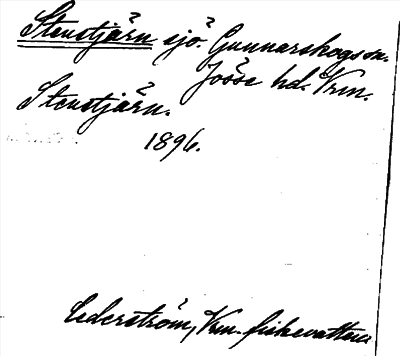 Stenstjärn sjö. Gunnarskogs sn.
Jösse hd. Vrm.
Stenstjärn.
1896.
Cederström, Vrm. fiskevatten